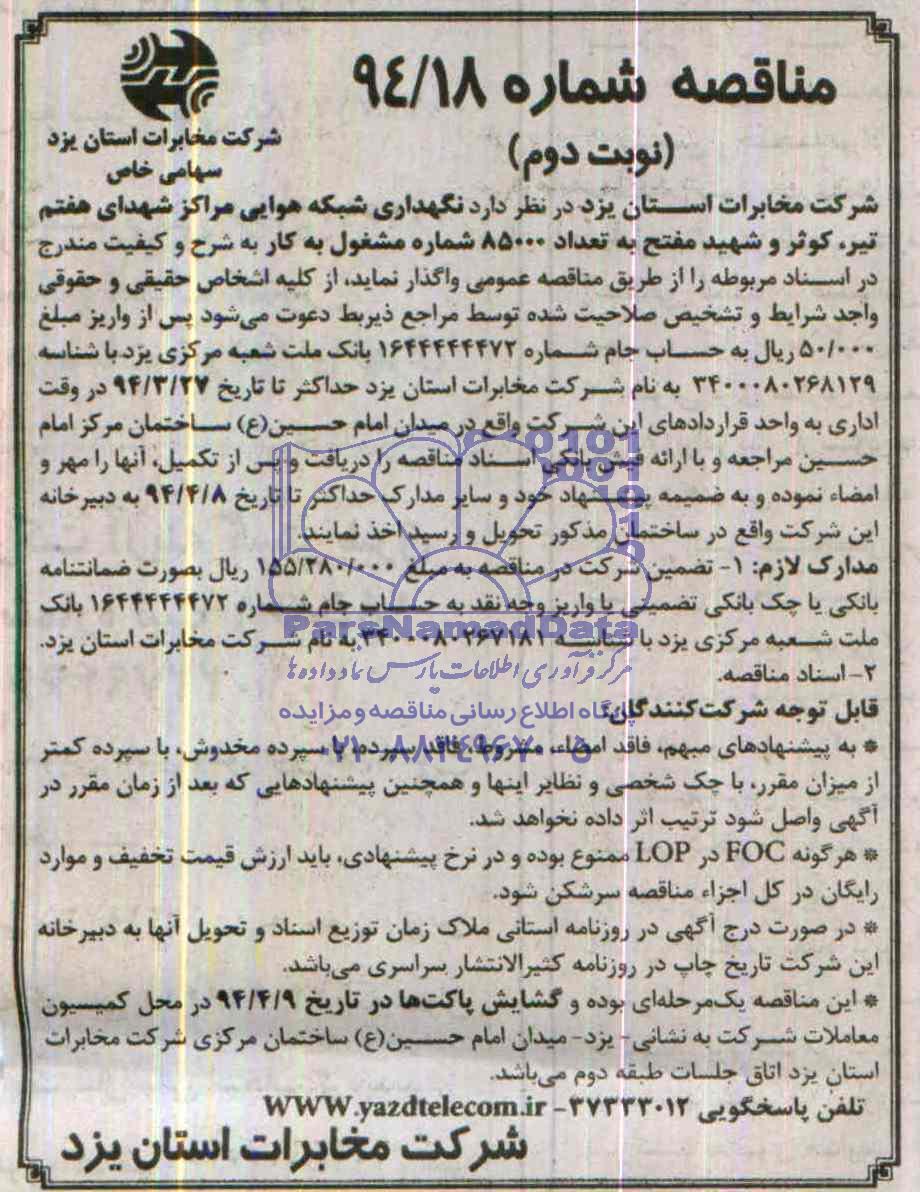 مناقصه شماره ۹٤/۱۸
(نوبت دوم)
شرکت مخابرات استان یزد
سهامی خاص
شرکت مخابرات استان یزد در نظر دارد نگهداری شبکه هوایی مراکز شهدای هفتم
تیر، کوثر و شهید مفتح به تعداد ۸۵۰۰۰ شماره مشغول به کار به شرح و کیفیت مندرج
در اسناد مربوطه را از طریق مناقصه عمومی واگذار نماید، از کلیه اشخاص حقیقی و حقوقی
واجد شرایط و تشخیص صلاحیت شده توسط مراجع ذیربط دعوت می‌شود پس از واریز مبلغ
۵۰/۰۰۰ ریال به حساب جام شماره ۱۶۴۴۴۴۴۴۷۲ بانک ملت شعبه مرکزی یزد با شناسه
۳۴۰۰۰۸۰۲۶۸۱۲۹ به نام شرکت مخابرات استان یزد حداکثر تا تاریخ ۹۴/۳/۲۷ در وقت
اداری به واحد قراردادهای این شرکت واقع در میدان امام حسین(ع) ساختمان مرکز امام
حسین مراجعه و با ارائه فیش بانکی اسناد مناقصه را دریافت و پس از تکمیل، آنها را مهر و
امضاء نموده و به ضمیمه پیشنهاد خود و سایر مدارک حداکثر تا تاریخ ۹۴/۴/۸ به دبیرخانه
این شرکت واقع در ساختمان مذکور تحویل و رسید اخذ نمایند.
مدارک لازم: ۱- تضمین شرکت در مناقصه به مبلغ ۱۵۵/۲۸۰/۰۰۰ ریال بصورت ضمانتنامه
بانکی یا چک بانکی تضمینی یا واریز وجه نقد به حساب جام شماره ۱۶۴۴۴۴۴۴۷۲ بانک
ملت شعبه مرکزی یزد با شناسه ۳۴۰۰۰۸۰۲۶۷۱۸۱ به نام شرکت مخابرات استان یزد.
۲- اسناد مناقصه.
قابل توجه شرکت‌کنندگان:
* به پیشنهادهای مبهم، فاقد امضاء، مشروط، فاقد سپرده، با سپرده مخدوش، با سپرده کمتر
از میزان مقرر، با چک شخصی و نظایر اینها و همچنین پیشنهادهایی که بعد از زمان مقرر در
آگهی واصل شود ترتیب اثر داده نخواهد شد.
* هرگونه FOC در LOP ممنوع بوده و در نرخ پیشنهادی، باید ارزش قیمت تخفیف و موارد
رایگان در کل اجزاء مناقصه سرشکن شود.
* در صورت درج آگهی در روزنامه استانی ملاک زمان توزیع اسناد و تحویل آنها به دبیرخانه
این شرکت تاریخ چاپ در روزنامه کثیرالانتشار سراسری می‌باشد.
* این مناقصه یک‌مرحله‌ای بوده و گشایش پاکت‌ها در تاریخ ۹۴/۴/۹ در محل کمیسیون
معاملات شرکت به نشانی- یزد- میدان امام حسین(ع) ساختمان مرکزی شرکت مخابرات
استان یزد اتاق جلسات طبقه دوم می‌باشد.
تلفن پاسخگویی ۳۷۲۳۳۰۱۲- WWW.yazdtelecom.ir
شرکت مخابرات استان یزد
ParsNamadData
مرکز فرآوری اطلاعات پارس نماد داده‌ها
پایگاه اطلاع رسانی مناقصه و مزایده
۰۲۱-۸۸۳٤۹۶۷۰-۵